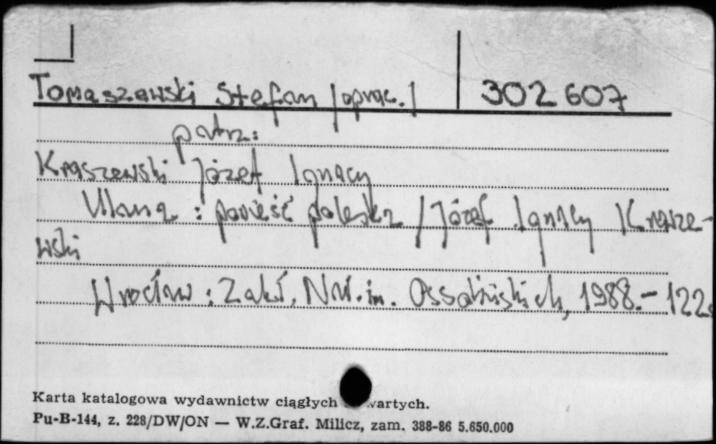 Tomaszewski Stefan /oprac./ 302 607
patrz:
Kraszewski Józef Ignacy
Ulana : powieść poleska / Józef Ignacy Krasze-
wski
Wrocław : Zakł. Nar. im. Ossolińskich, 1988.- 122
Karta katalogowa wydawnictw ciągłych wartych.
Pu-B-144, z. 228/DW/ON — W.Z.Graf. Milicz, zam. 388-86 5.650.000